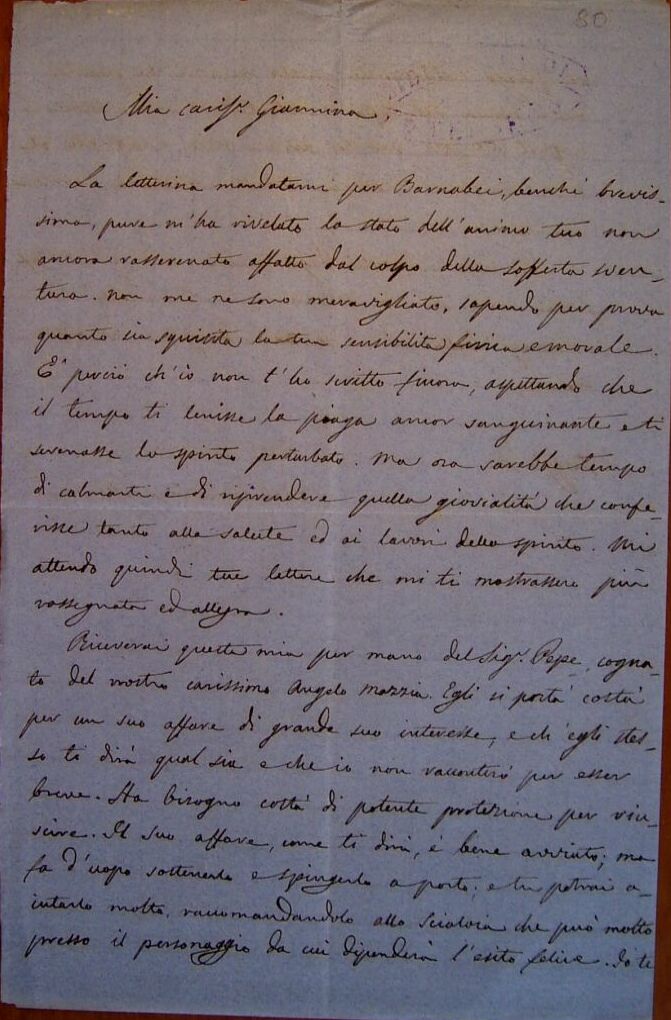 80
Mia cariss. Giannina,
La letterina mandatami per Barnabei, benché brevis-
sima, pure m'ha rivelato lo stato dell'animo tuo non
ancora rasserenato affatto dal colpo della sofferta sven-
tura. Non me ne sono meravigliato, sapendo per prova
quanto sia squisita la tua sensibilità fisica e morale.
E' perciò ch'io non t'ho scritto finora, aspettando che
il tempo ti lenisse la piaga ancor sanguinante e ti
serenasse lo spirito perturbato. Ma ora sarebbe tempo
di calmarti e di riprendere quella giovialità che confe-
risce tanto alla salute ed ai lavori dello spirito. Mi
attendo quindi tue lettere che mi ti mostrassero più
rassegnata ed allegra.
Riceverai questa mia per mano del Sig. Pepe, cogna-
to del nostro carissimo Angelo Mazzia. Egli si porta costà
per un suo affare di grande suo interesse, e ch'egli stes-
so ti dirà qual sia e che io non racconterò per esser
breve. Ha bisogno costà di potente protezione per riu-
scire. Il suo affare, come ti dirà, è bene avviato; ma
fa d'uopo sostenerlo e spingerlo a porto, e tu potrai a-
iutarlo molto, raccomandandolo allo Scialoia che può molto
presso il personaggio da cui dipenderà l'esito felice. Io te